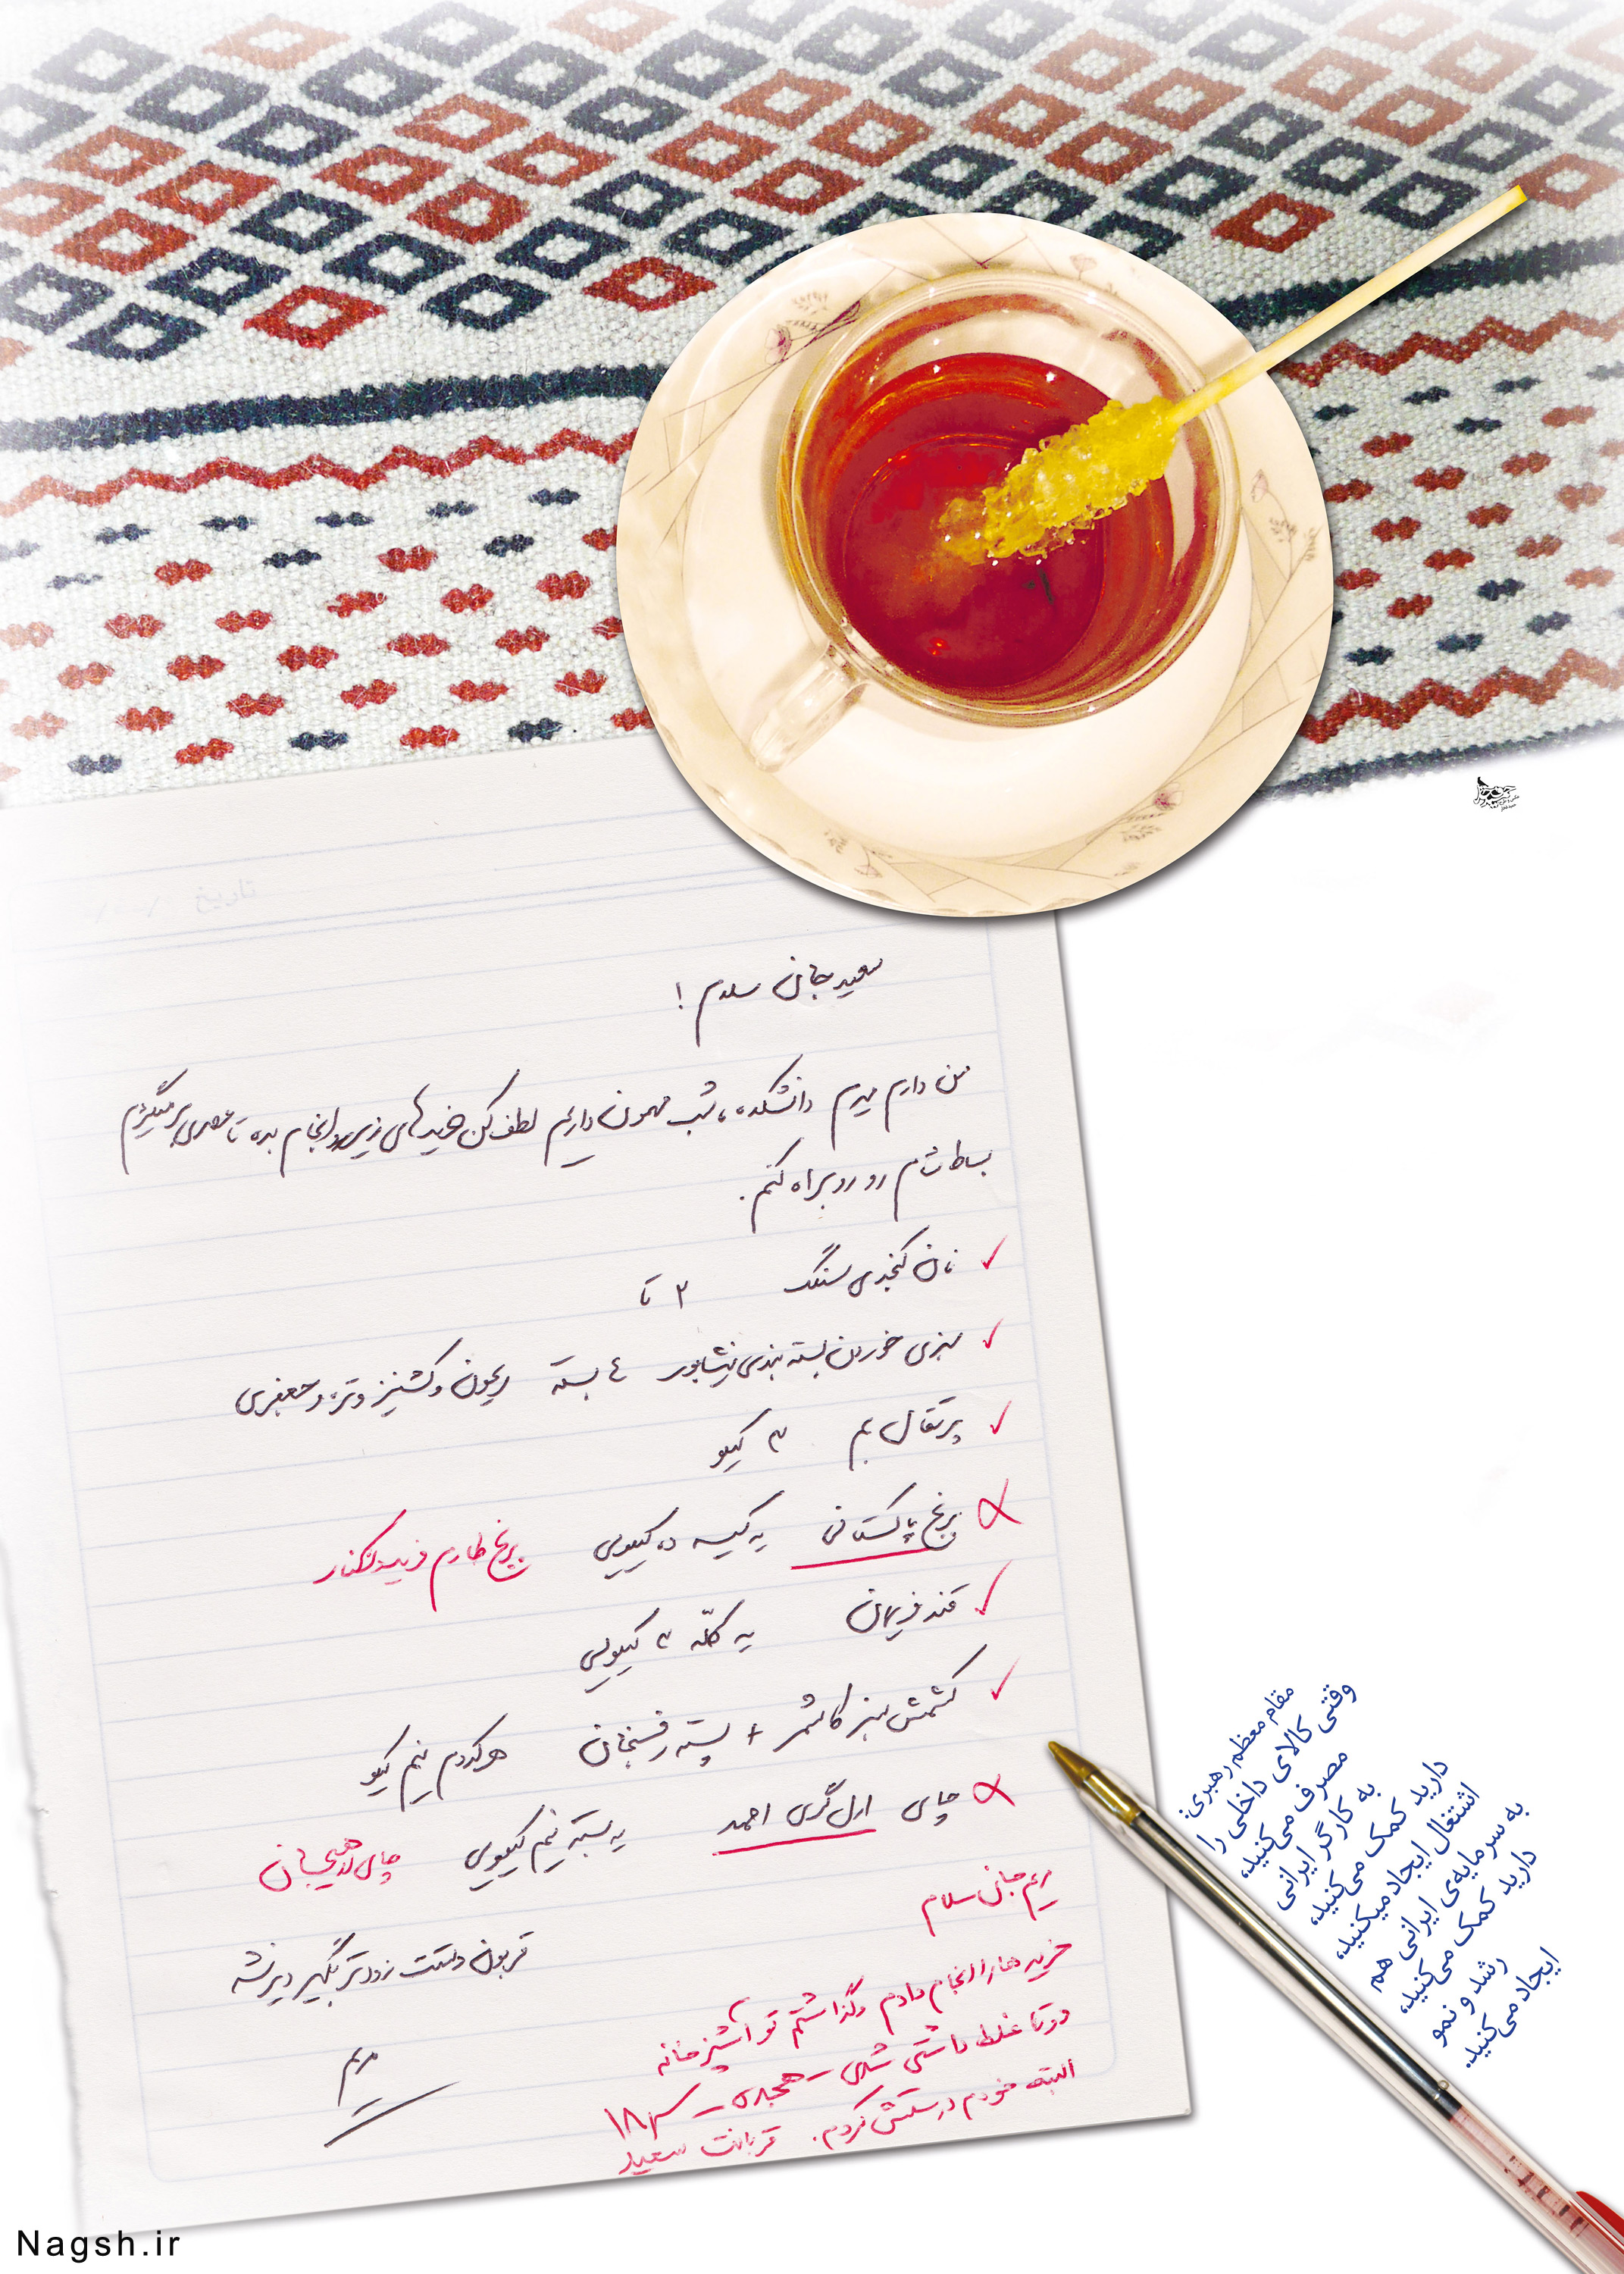 تاریخ / /
سعید جان سلام !
من دارم میرم دانشکده، شب مهمون داریم لطف کن خریدهای زیر رو انجام بده تا عصری برمیگردم
بساط شام رو روبراه کنم.
نان کنجدی سنگک ۲ تا
سبزی خوردن بسته بندی نیشابور ۴ بسته ریحون و گشنیز و تره و جعفری
پرتقال بم ۳ کیلو
برنج پاکستانی یه کیسه ده کیلویی برنج طارم فریدونکنار
قند فریمان یه کله ۲ کیلویی
کشمش سبز کاشمر + پسته رفسنجان هرکدوم نیم کیلو
چای ارل گری احمد یه بسته نیم کیلویی چای لاهیجان
قربون دستت زودتر بگیر دیر نشه
مریم
مریم جان سلام
خریدها را انجام دادم گذاشتم تو آشپزخانه
دو تا غلط داشتی شدی ۱۸
البته خودم درستش کردم. قربانت سعید
مقام معظم رهبری:
وقتی کالای داخلی را
مصرف می‌کنید،
به کارگر ایرانی
دارید کمک می‌کنید،
اشتغال ایجاد میکنید،
به سرمایه‌ی ایرانی هم
دارید کمک می‌کنید،
رشد و نمو
ایجاد می‌کنید.
Nagsh.ir